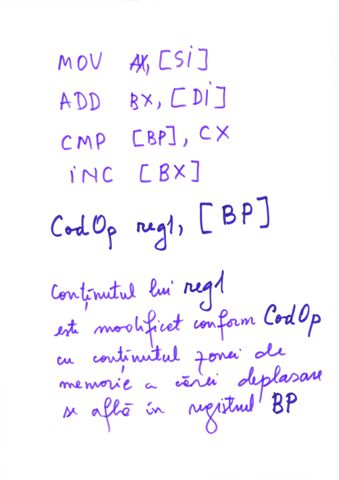 MOV AX, [Si]
ADD BX, [Di]
CMP [BP], CX
iNC [BX]
CodOp reg1, [BP]
Conținutul lui reg1
este modificat conform CodOp
cu conținutul zonei de
memorie a cărei deplasare
se află în registrul BP